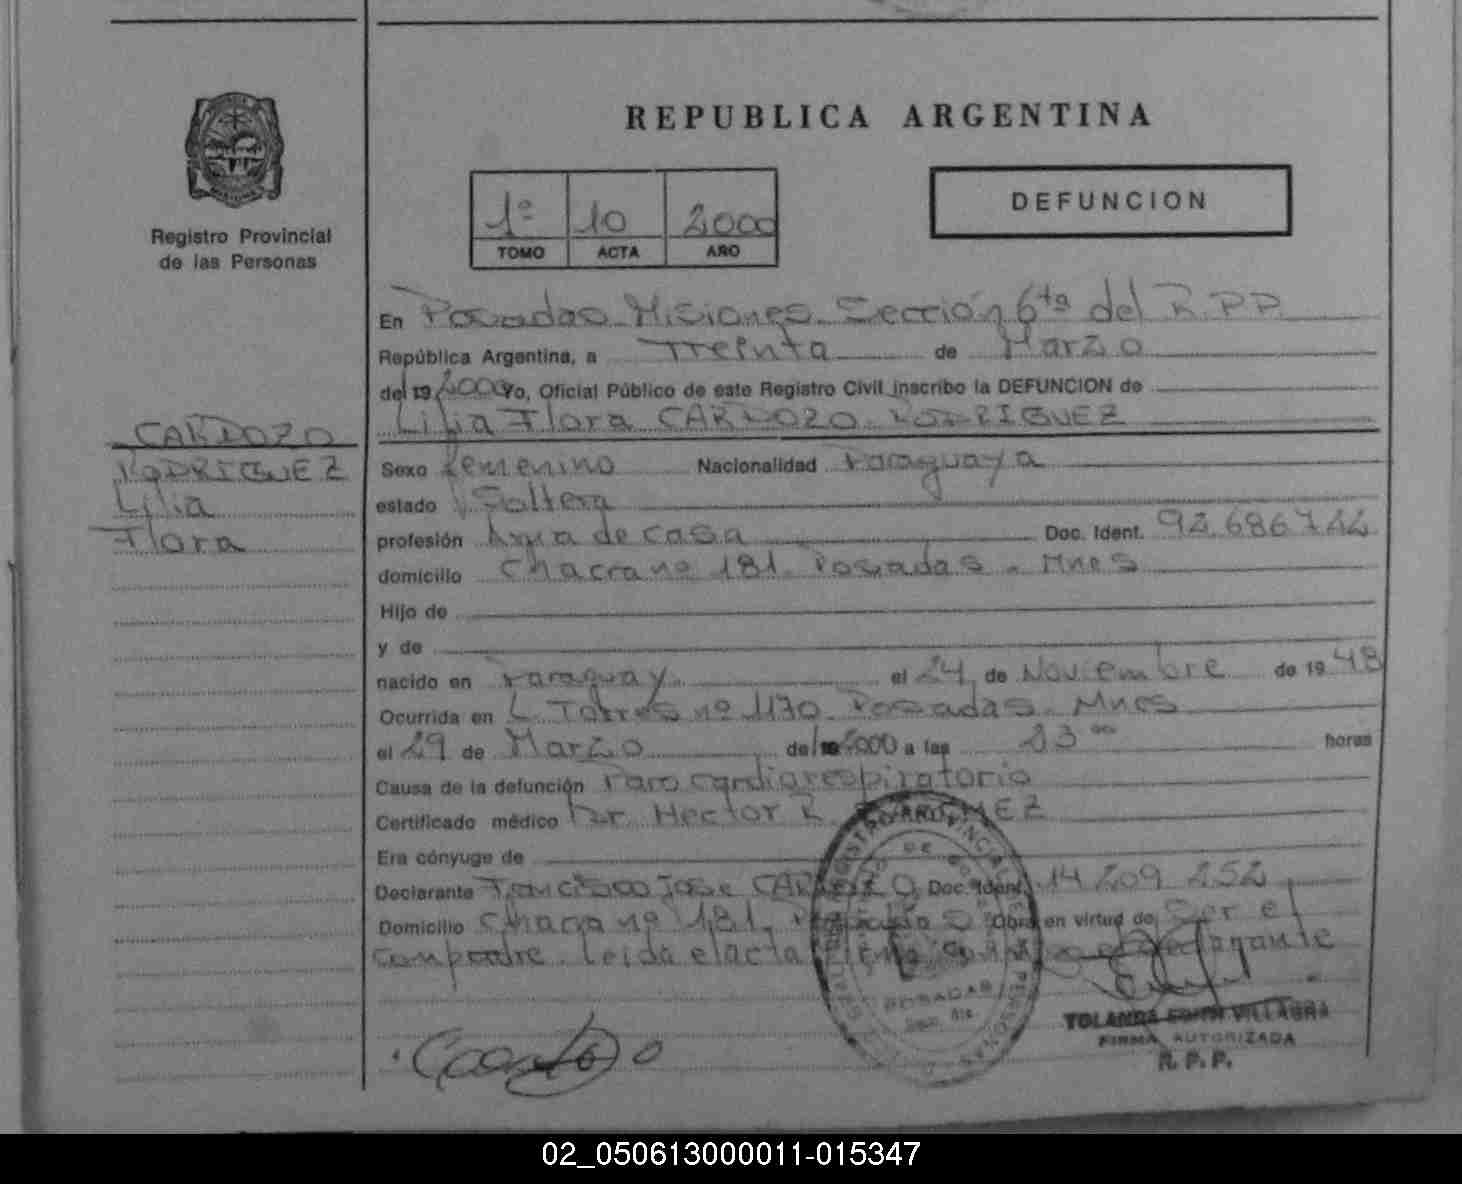 REPUBLICA ARGENTINA
Registro Provincial
de las Personas
1º 10 2000
TOMO ACTA AÑO
DEFUNCION
En Posadas Misiones Sección 6ta del R.P.P.
República Argentina, a Treinta de Marzo
del 19 2000 Yo, Oficial Público de este Registro Civil inscribo la DEFUNCION de
Lilia Flora CARDOZO RODRIGUEZ
CARDOZO
RODRIGUEZ
Lilia
Flora
Sexo Femenino Nacionalidad Paraguaya
estado Soltera
profesión Ama de casa Doc. Ident. 92.686.722
domicilio Chacra nº 181 Posadas - Mnes
Hijo de
y de
nacido en Paraguay el 24 de Noviembre de 1948
Ocurrida en L. Torres nº 1170 Posadas - Mnes
el 29 de Marzo del 2000 a las 23 00 horas
Causa de la defunción Paro cardiorespiratorio
Certificado médico Dr. Hector R.
Era cónyuge de
Declarante Francisco Jose CARDOZO Doc. Ident. 14 209 252
Domicilio Chacra nº 181 Posadas Obra en virtud de Ser el
compadre. Leida el acta firma conmigo el declarante
REGISTRO PROVINCIAL DE LAS PERSONAS
POSADAS
YOLANDA EDITH VILLALBA
FIRMA AUTORIZADA
R. P. P.
Cardozo
02_050613000011-015347